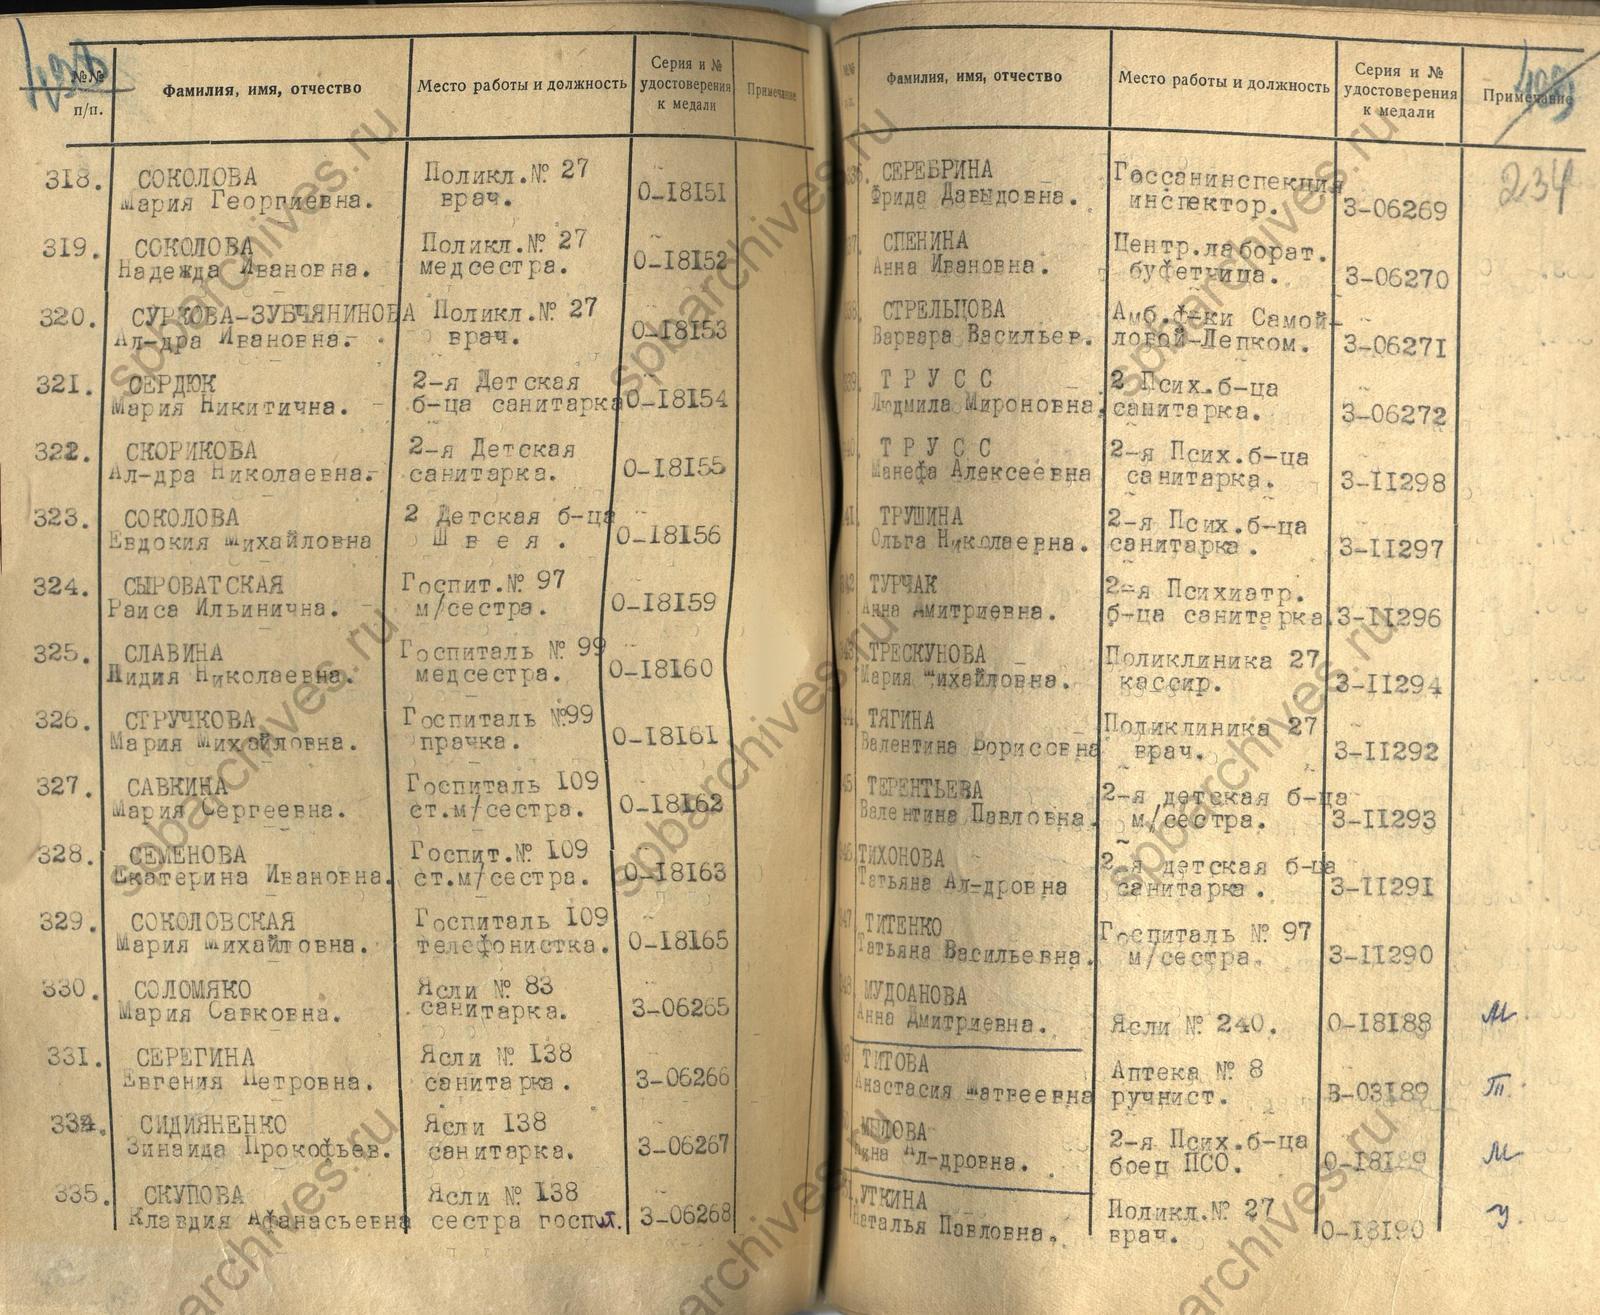 №№
п/п.
Фамилия, имя, отчество
Место работы и должность
Серия и №
удостоверения
к медали
Примечание
318. СОКОЛОВА Поликл.№ 27
Мария Георгиевна. врач. О-18151
319. СОКОЛОВА Поликл.№ 27
Надежда Ивановна. медсестра. О-18152
320. СУРКОВА-ЗУБЧЯНИНОВА Поликл.№ 27
Ал-дра Ивановна. врач. О-18153
321. СЕРДЮК 2-я Детская
Мария Никитична. б-ца санитарка О-18154
322. СКОРИКОВА 2-я Детская
Ал-дра Николаевна. санитарка. О-18155
323. СОКОЛОВА 2 Детская б-ца
Евдокия Михайловна Ш в е я . О-18156
324. СЫРОВАТСКАЯ Госпит.№ 97
Раиса Ильинична. м/сестра. О-18159
325. СЛАВИНА Госпиталь № 99
Лидия Николаевна. медсестра. О-18160
326. СТРУЧКОВА Госпиталь №99
Мария Михайловна. прачка. О-18161
327. САВКИНА Госпиталь 109
Мария Сергеевна. ст.м/сестра. О-18162
328. СЕМЕНОВА Госпит.№ 109
Екатерина Ивановна. ст.м/сестра. О-18163
329. СОКОЛОВСКАЯ Госпиталь 109
Мария Михайловна. телефонистка. О-18165
330. СОЛОМЯКО Ясли № 83
Мария Савковна. санитарка. З-06265
331. СЕРЕГИНА Ясли № 138
Евгения Петровна. санитарка. З-06266
334. СИДИЯНЕНКО Ясли 138
Зинаида Прокофьев. санитарка. З-06267
335. СКУПОВА Ясли № 138
Клавдия Афанасьевна сестра госпит. З-06268
Фамилия, имя, отчество
Место работы и должность
Серия и №
удостоверения
к медали
Примечание
234
СЕРЕБРИНА Госсанинспекция
Фрида Давыдовна. инспектор. З-06269
СПЕНИНА Центр.лаборат.
Анна Ивановна. буфетчица. З-06270
СТРЕЛЬЦОВА Амб.ф-ки Самой-
Варвара Васильев. ловой-Лепком. З-06271
Т Р У С С 2 Псих.б-ца
Людмила Мироновна. санитарка. З-06272
Т Р У С С 2-я Псих.б-ца
Манефа Алексеевна санитарка. З-11298
ТРУШИНА 2-я Псих.б-ца
Ольга Николаевна. санитарка. З-11297
ТУРЧАК 2-я Психиатр.
Анна Дмитриевна. б-ца санитарка. З-11296
ТРЕСКУНОВА Поликлиника 27
Мария Михайловна. кассир. З-11294
ТЯГИНА Поликлиника 27
Валентина Борисовна врач. З-11292
ТЕРЕНТЬЕВА 2-я детская б-ца
Валентина Павловна. м/сестра. З-11293
ТИХОНОВА 2-я детская б-ца
Татьяна Ал-дровна санитарка. З-11291
ТИТЕНКО Госпиталь № 97
Татьяна Васильевна. м/сестра. З-11290
МУДОАНОВА
Анна Дмитриевна. Ясли № 240. О-18188 М.
ТИТОВА Аптека № 8
Анастасия Матвеевна ручнист. В-03189 Т.
2-я Псих.б-ца
Ал-дровна. боец ПСО. О-18189 М
УТКИНА Поликл.№ 27
Наталья Павловна. врач. О-18190 У.
spbarchives.ru
spbarchives.ru
spbarchives.ru
spbarchives.ru
spbarchives.ru
spbarchives.ru
spbarchives.ru
spbarchives.ru
spbarchives.ru